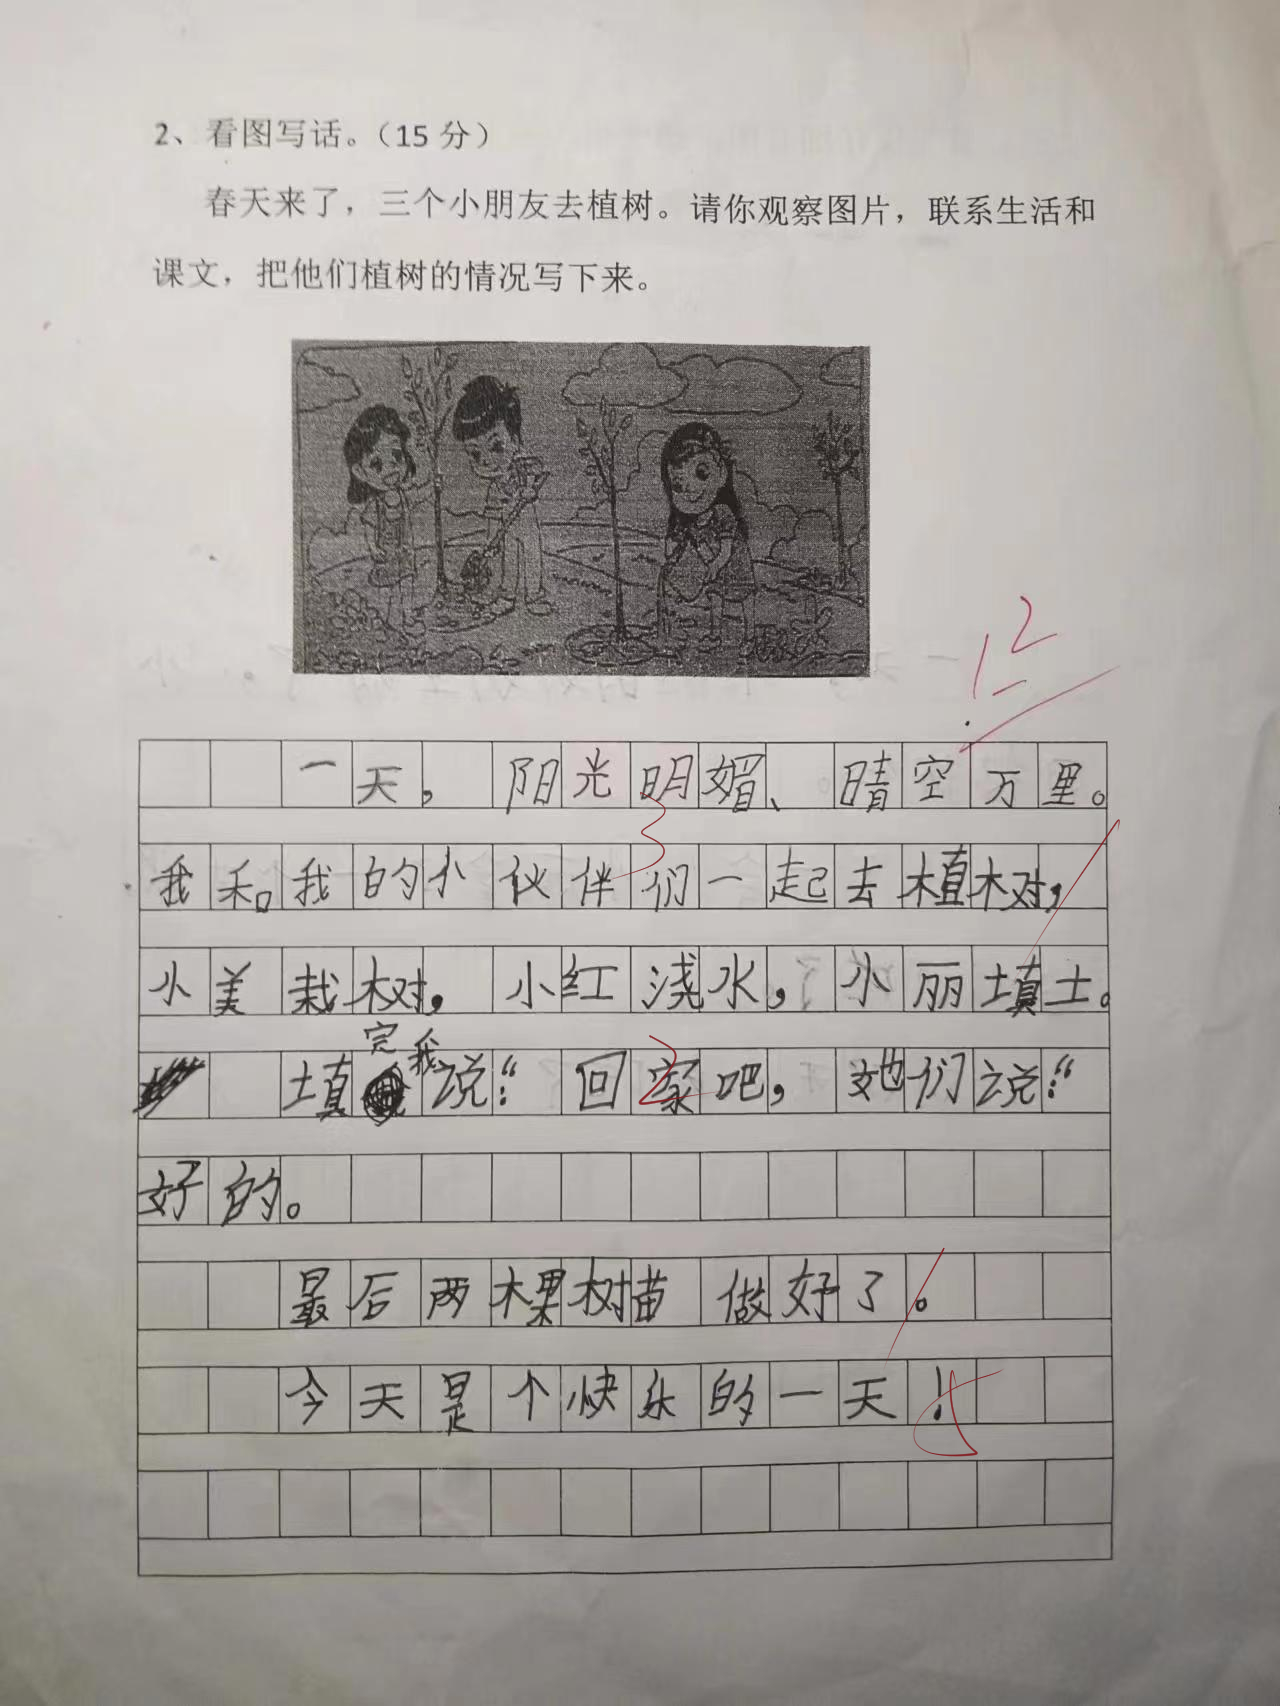 2、看图写话。（15 分）
春天来了，三个小朋友去植树。请你观察图片，联系生活和
课文，把他们植树的情况写下来。
12
一天，阳光明媚、晴空万里。
我和我的小伙伴们一起去植树，
小美栽树，小红浇水，小丽填土。
填完我说：“回家吧，她们说：“
好的。
最后两棵树苗做好了。
今天是个快乐的一天！